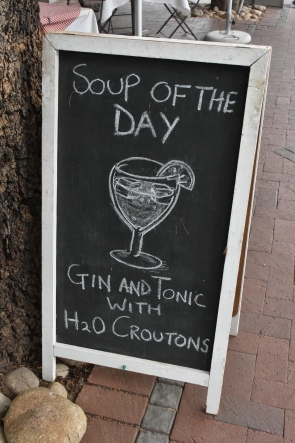 SOUP OF THE
DAY
GIN AND TONIC
WITH
H2O CROUTONS